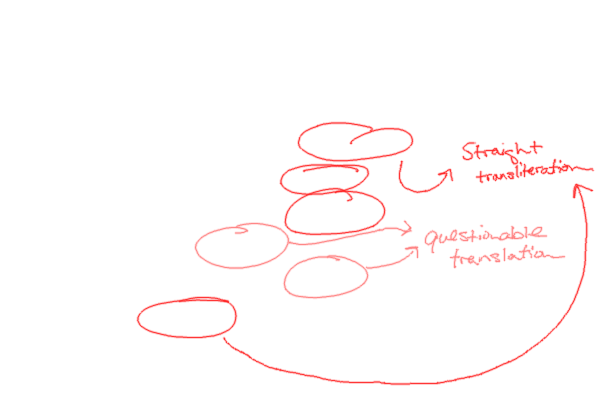 Straight
transliteration
questionable
translation